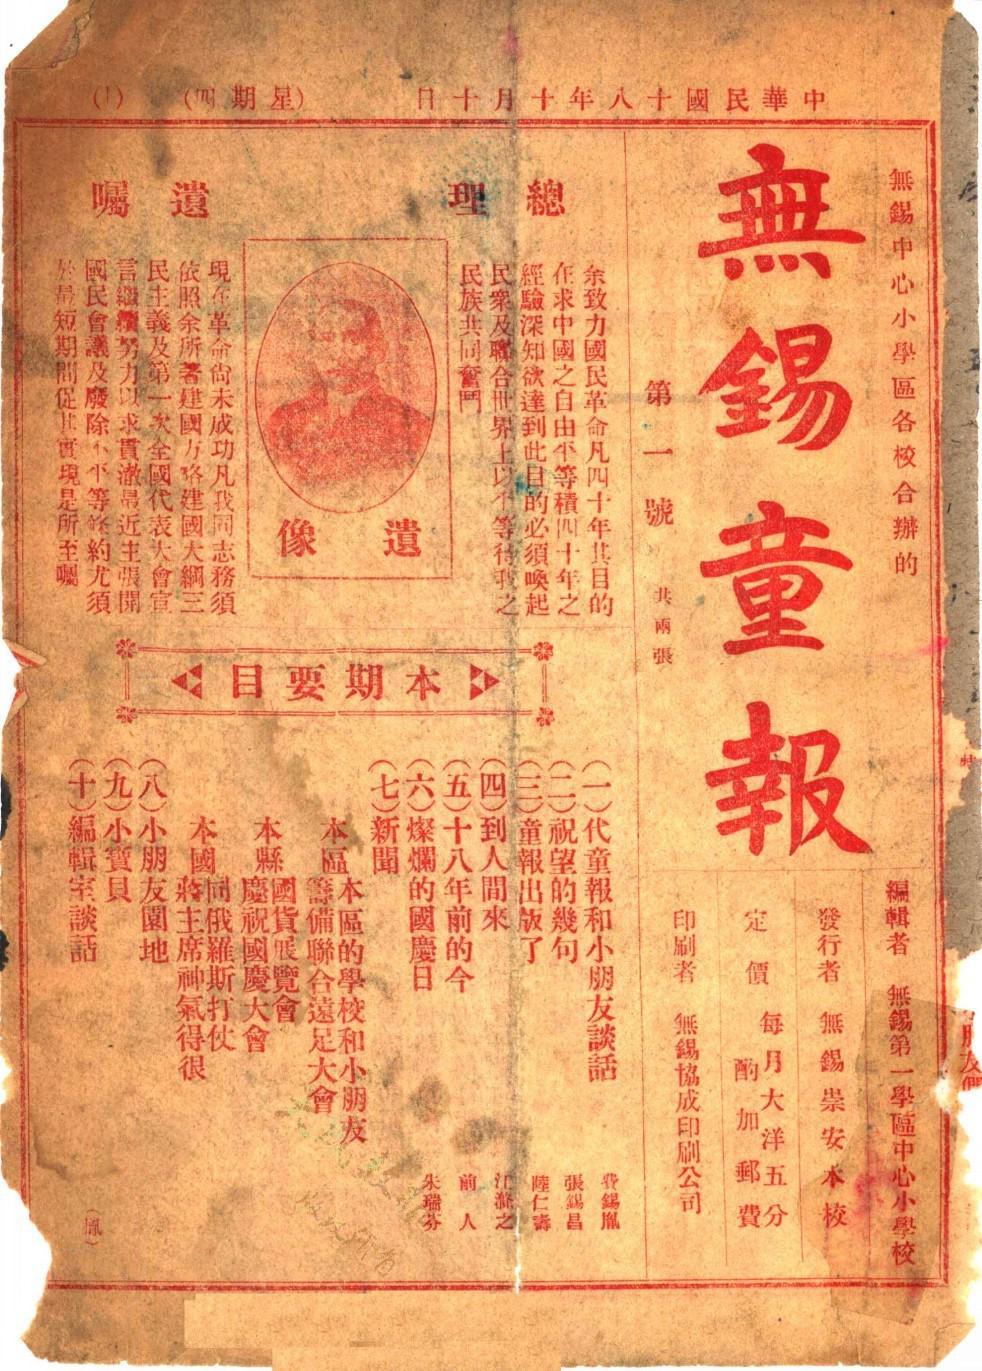 中華民國十八年十月十日
(星期四)
無錫中心小學區各校合辦的
無錫童報
第一號
共兩張
編輯者 無錫第一學區中心小學校
發行者 無錫崇安本校
定價 每月大洋五分
酌加郵費
印刷者 無錫協成印刷公司
總理
遺囑
余致力國民革命凡四十年其目的
在求中國之自由平等積四十年之
經驗深知欲達到此目的必須喚起
民眾及聯合世界上以平等待我之
民族共同奮鬥
遺像
現在革命尚未成功凡我同志務須
依照余所著建國方略建國大綱三
民主義及第一次全國代表大會宣
言繼續努力以求貫澈最近主張開
國民會議及廢除不平等條約尤須
於最短期間促其實現是所至囑
本期要目
(一)代童報和小朋友談話 費錫胤
(二)祝望的幾句 張錫昌
(三)童報出版了 陸仁壽
(四)到人間來 江之
(五)十八年前的今 前人
(六)燦爛的國慶日 朱瑞芬
(七)新聞
本區 本區的學校和小朋友
籌備聯合遠足大會
本縣 國貨展覽會
慶祝國慶大會
本國 同俄羅斯打仗
蔣主席神氣得很
(八)小朋友園地
(九)小寶貝
(十)編輯室談話
(胤)
朋友